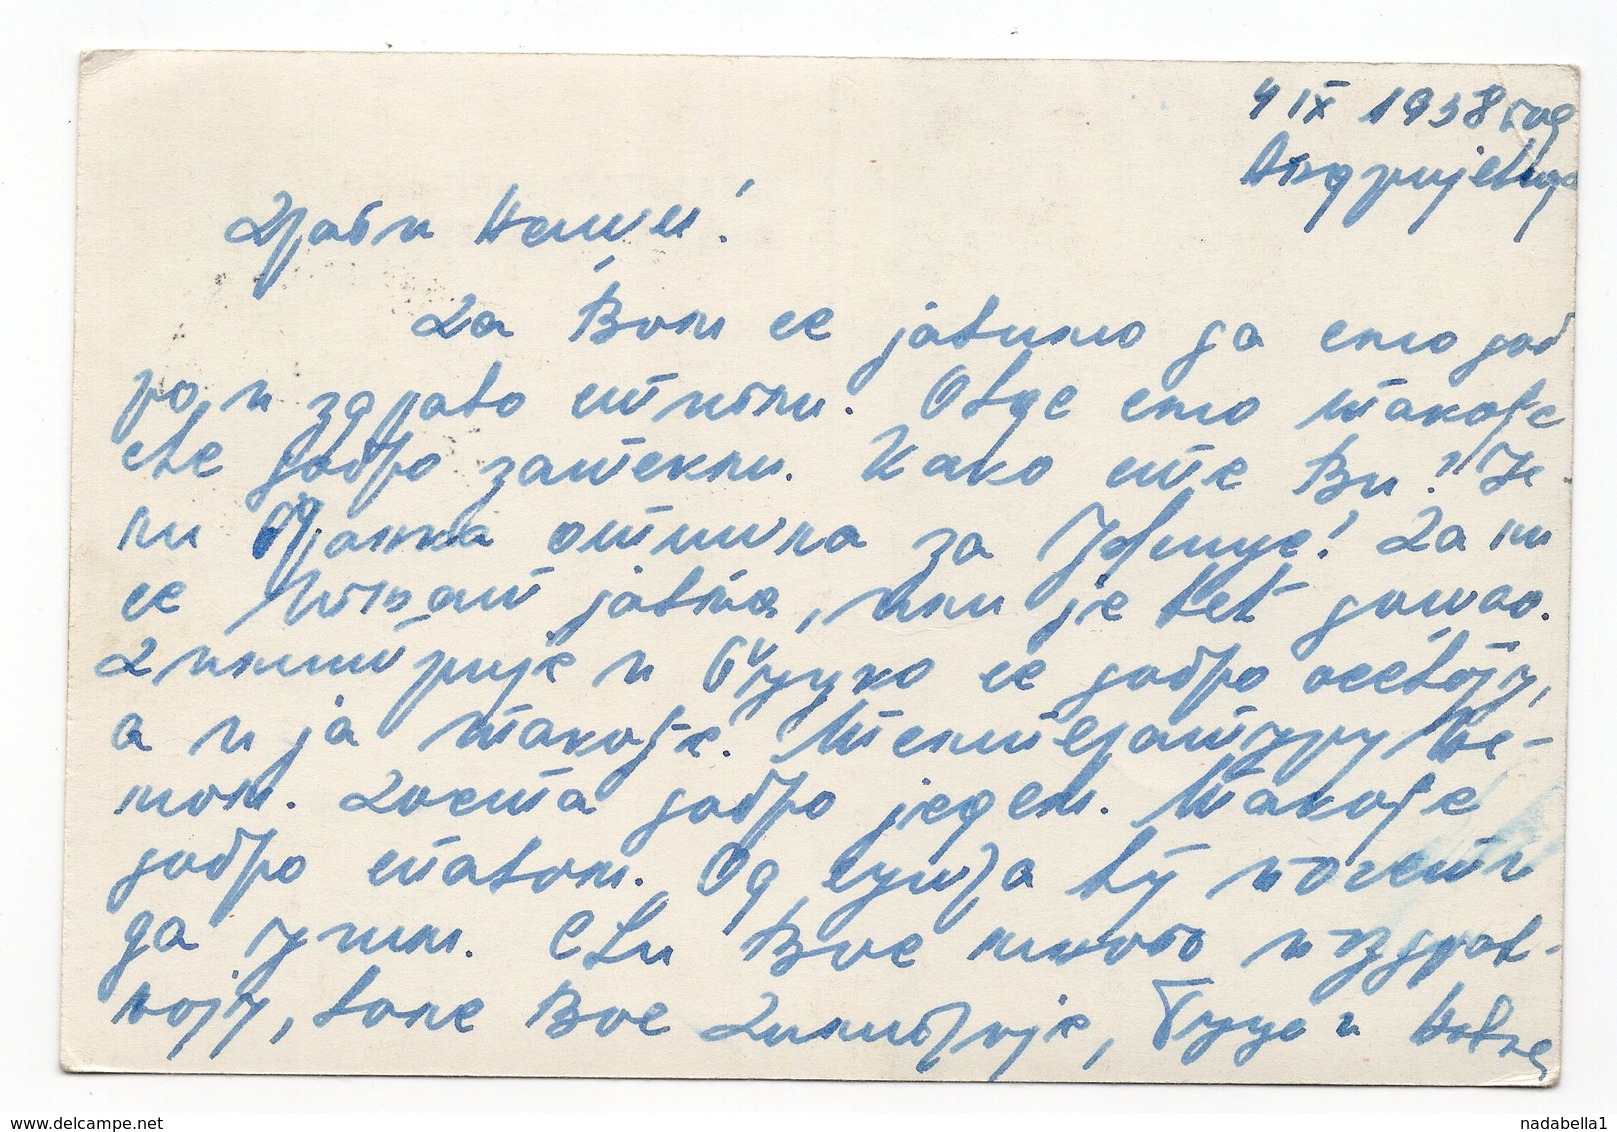 4 IX 1938 год
Андријевица
Драги Наши!
Да Вам се јавимо да смо доб
ро и здраво стигли. Овде смо такође
све добро затекли. Како сте Ви? Је-
ли отишла за
се јавља, или је већ дошао.
Димитрије и се добро осећају,
а и ја такође. Температуру не-
мам. Доста добро једем. Такође
добро спавам. Од сутра ћу почети
да учим. Сви Вас много поздрав-
љају, воле Вас Димитрије, и
nadabella1